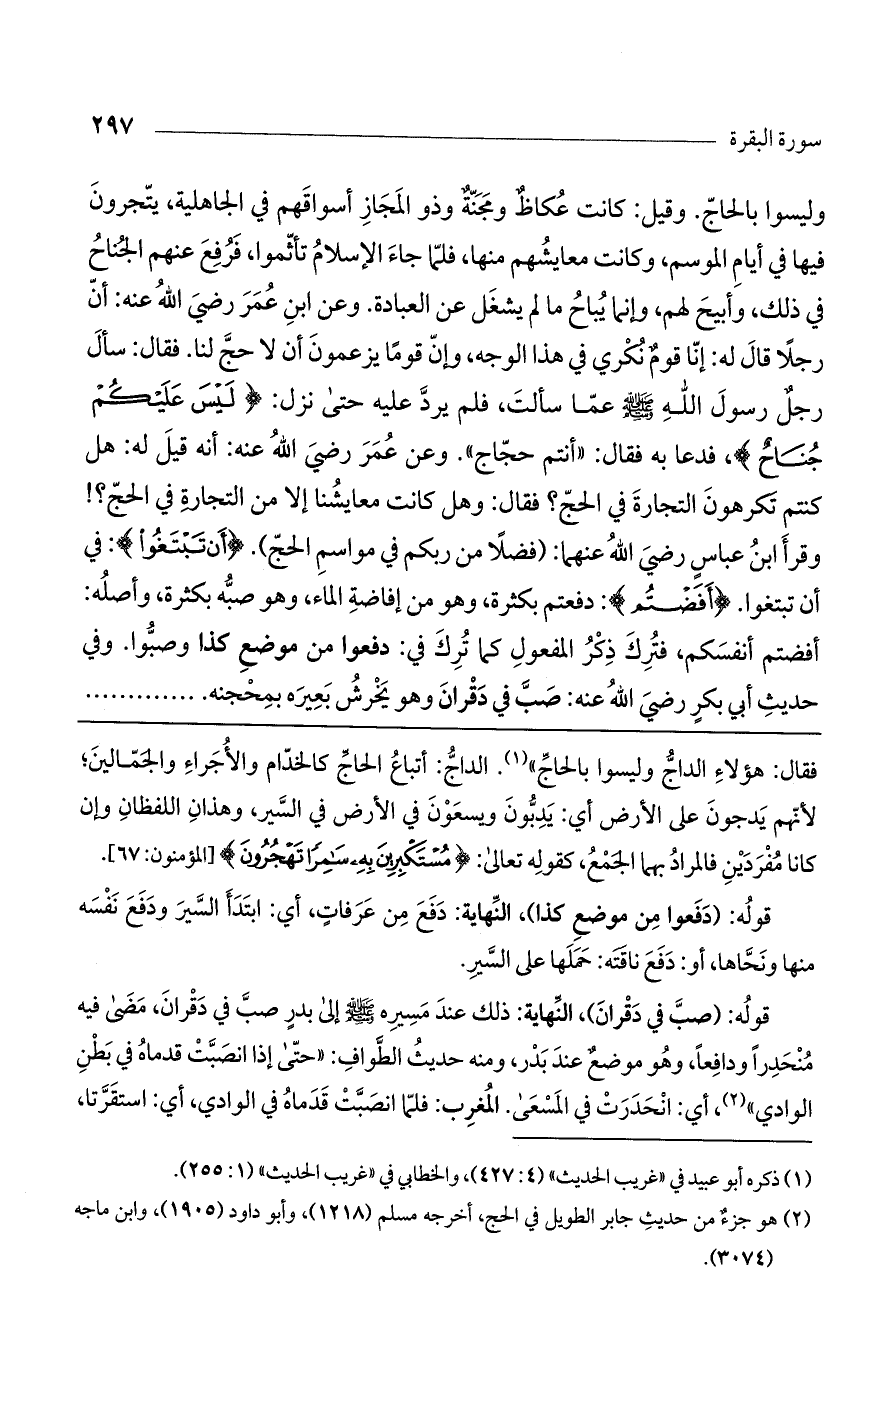 سورة البقرة ٢٩٧
وليسوا بالحاجّ. وقيل: كانت عُكاظٌ ومَجَنّةٌ وذو المَجَازِ أسواقَهم في الجاهلية، يتّجرونَ
فيها في أيامِ الموسم، وكانت معايشُهم منها، فلمّا جاءَ الإسلامُ تأثّموا، فَرُفِعَ عنهم الجُناحُ
في ذلك، وأبيحَ لهم، وإنما يُباحُ ما لم يشغَل عن العبادة. وعن ابنِ عُمَرَ رضيَ اللهُ عنه: أنّ
رجلًا قالَ له: إنّا قومٌ نُكْري في هذا الوجه، وإنّ قومًا يزعمونَ أن لا حجَّ لنا. فقال: سألَ
رجلٌ رسولَ اللهِ ﷺ عمّا سألتَ، فلم يردَّ عليه حتىٰ نزل: ﴿لَيْسَ عَلَيْكُمْ
جُنَاحٌ﴾، فدعا به فقال: «أنتم حجّاج». وعن عُمَرَ رضيَ اللهُ عنه: أنه قيلَ له: هل
كنتم تَكرهونَ التجارةَ في الحجّ؟ فقال: وهل كانت معايشُنا إلا من التجارةِ في الحجّ؟!
وقرأَ ابنُ عباسٍ رضيَ اللهُ عنهما: (فضلًا من ربكم في مواسمِ الحجّ). ﴿أَن تَبْتَغُوا۟﴾: في
أن تبتغوا. ﴿أَفَضْتُم﴾: دفعتم بكثرة، وهو من إفاضةِ الماء، وهو صبُّه بكثرة، وأصلُه:
أفضتم أنفسَكم، فتُرِكَ ذِكْرُ المفعولِ كما تُرِكَ في: دفعوا من موضعِ كذا وصبُّوا. وفي
حديثِ أبي بكرٍ رضيَ اللهُ عنه: صَبَّ في دَقْرانَ وهو يَخْرشُ بَعِيرَه بمِحْجنه. .............
فقال: هؤلاءِ الداجُّ وليسوا بالحاجِّ»(١). الداجُّ: أتباعُ الحاجِّ كالخدّام والأُجَراءِ والجَمّالينَ؛
لأنّهم يَدجونَ على الأرض أي: يَدِبُّونَ ويسعَوْنَ في الأرض في السَّير، وهذانِ اللفظانِ وإن
كانا مُفْرَدَيْنِ فالمرادُ بهما الجَمْعُ، كقولِه تعالىٰ: ﴿مُسْتَكْبِرِينَ بِهِۦ سَٰمِرًا تَهْجُرُونَ﴾ [المؤمنون: ٦٧].
قولُه: (دَفَعوا مِن موضعِ كذا)، النِّهاية: دَفَعَ مِن عَرَفاتٍ، أي: ابتَدَأَ السَّيرَ ودَفَعَ نَفْسَه
منها ونَحَّاها، أو: دَفَعَ ناقَتَه: حَمَلَها على السَّيرِ.
قولُه: (صبَّ في دَقْرانَ)، النِّهاية: ذلك عندَ مَسِيرِه ﷺ إلىٰ بدرٍ صبَّ في دَقْرانَ، مَضَىٰ فيه
مُنْحَدِراً ودافِعاً، وهُو موضعٌ عندَ بَدْر، ومنه حديثُ الطَّوافِ: «حتّىٰ إذا انصَبَّتْ قدماهُ في بَطْنِ
الوادي»(٢)، أي: انْحَدَرَتْ في المَسْعَىٰ. المُغرِب: فلمّا انصَبَّتْ قَدَماهُ في الوادي، أي: استقَرَّتا،
(١) ذكره أبو عبيد في «غريب الحديث» (٤: ٤٢٧)، والخطابي في «غريب الحديث» (١: ٢٥٥).
(٢) هو جزءٌ من حديثِ جابر الطويل في الحج، أخرجه مسلم (١٢١٨)، وأبو داود (١٩٠٥)، وابن ماجه
(٣٠٧٤).